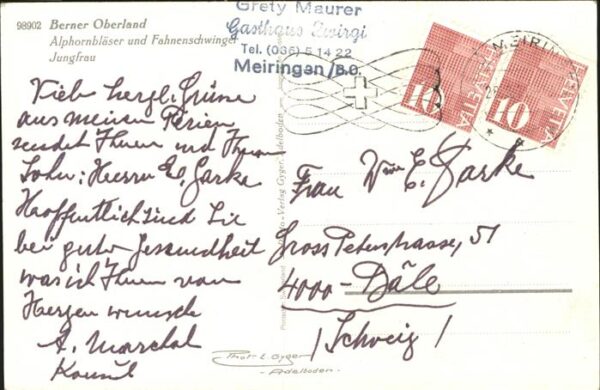 98902 Berner Oberland
Alphornbläser und Fahnenschwinger
Jungfrau
Grety Maurer
Gasthaus Zwirgi
Tel. (036) 5 14 22
Meiringen /B.O.
MEIRINGEN
HELVETIA
10
HELVETIA
10
Viele herzl. Grüsse
aus meinen Ferien
sendet Ihnen und Ihrem
Sohn: Herrn E. Garke
Hoffentlich sind Sie
bei guter Gesundheit
was ich Ihnen von
Herzen wünsche
A. Marchal
Konsul
Frau E. Garke
Gross Peterstrasse, 51
4000 - Bâle
(Schweiz)
Verlag Gyger, Adelboden
Phot. E. Gyger
- Adelboden -